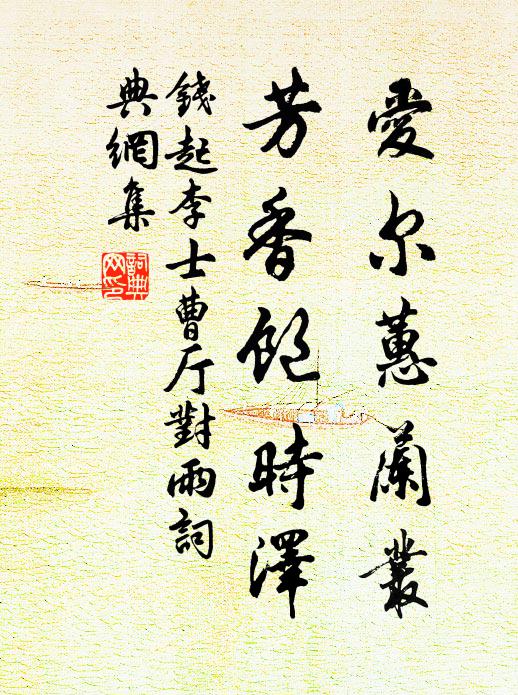 愛尔蕙蘭叢
芳香飽時澤
錢起李士曹厅對雨詞
典網集
詞典
网印